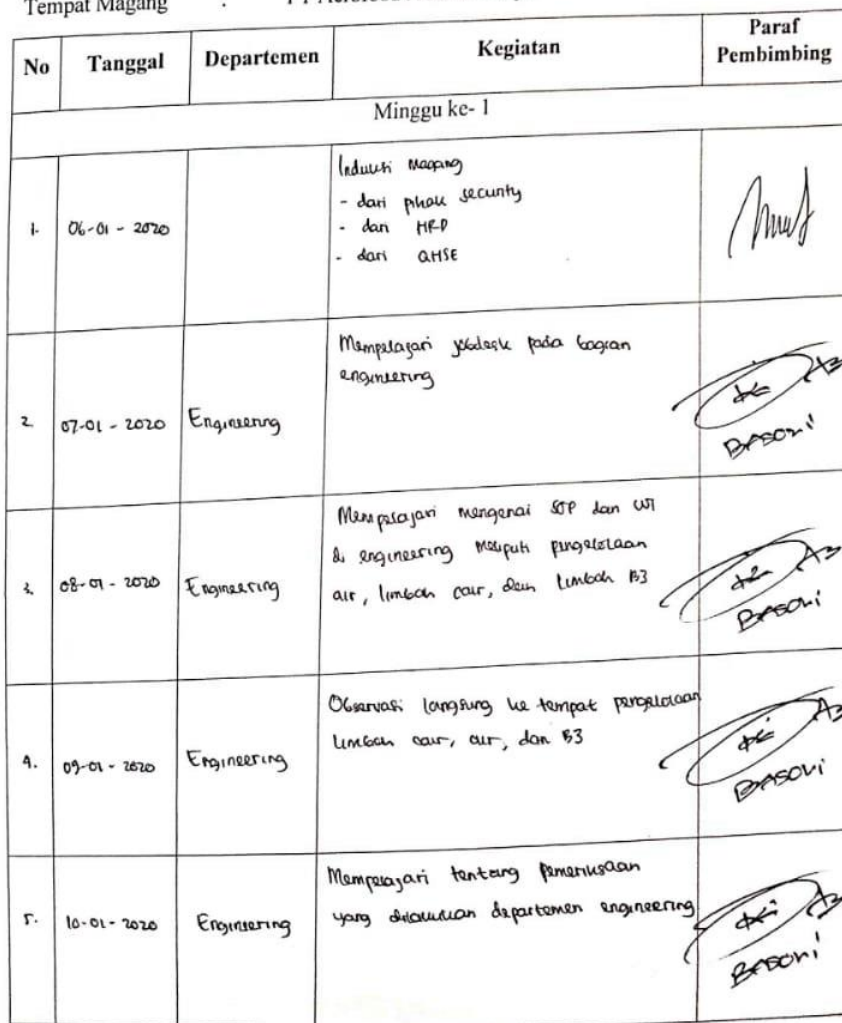 Tempat Magang :
No Tanggal Departemen Kegiatan Paraf Pembimbing
Minggu ke- 1
1. 06-01-2020
Induksi Magang
- dari pihak security
- dari HRD
- dari QHSE
2. 07-01-2020 Engineering
Mempelajari jobdesk pada bagian
engineering
BASORI
3. 08-01-2020 Engineering
Mempelajari mengenai SOP dan WI
di engineering meliputi pengelolaan
air, limbah cair, dan limbah B3
BASORI
4. 09-01-2020 Engineering
Observasi langsung ke tempat pengelolaan
limbah cair, air, dan B3
BASORI
5. 10-01-2020 Engineering
Mempelajari tentang pemeriksaan
yang dilakukan departemen engineering
BASORI